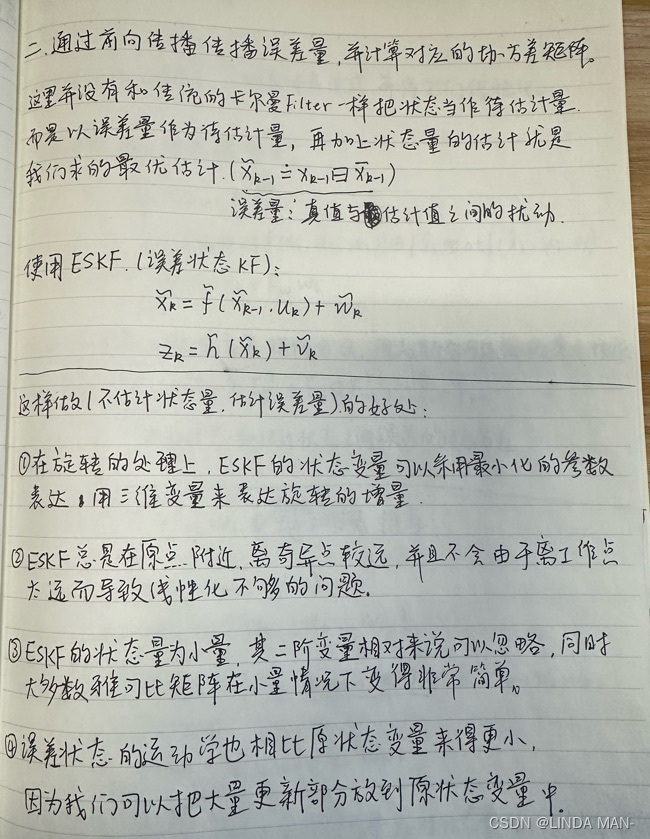 二.通过前向传播传播误差量,并计算对应的协方差矩阵。
这里并没有和传统的卡尔曼Filter一样把状态当作待估计量.
而是以误差量作为待估计量,再加上状态量的估计就是
我们求的最优估计.(x̃ₖ₋₁ = xₖ₋₁ ⊟ x̄ₖ₋₁)
误差量:真值与估计值之间的扰动.
使用ESKF.(误差状态KF):
x̃ₖ = f̃(x̃ₖ₋₁, uₖ) + w̃ₖ
zₖ = h̃(x̃ₖ) + ṽₖ
这样做(不估计状态量,估计误差量)的好处:
①在旋转的处理上,ESKF的状态变量可以采用最小化的参数
表达,用三维变量来表达旋转的增量.
②ESKF总是在原点附近,离奇异点较远,并且不会由于离工作点
太远而导致线性化不够的问题。
③ESKF的状态量为小量,其二阶变量相对来说可以忽略,同时
大多数雅可比矩阵在小量情况下变得非常简单。
④误差状态的运动学也相比原状态变量来得更小,
因为我们可以把大量更新部分放到原状态变量中。
CSDN @LINDA MAN-